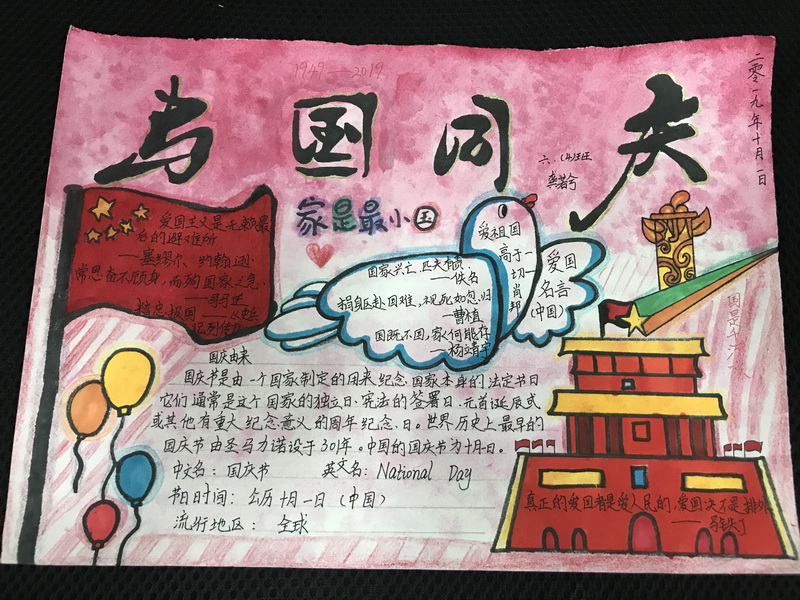 1949——2019
与国同庆
二零一九年十月一日
六.(4)班
龚若兮
家是最小国
爱国主义是无赖最
后的避难所
——塞缪尔、约翰逊
常思奋不顾身,而殉国家之急.
——司马迁
精忠报国
爱祖国
高于一
切
肖邦
爱国
名言
(中国)
国家兴亡,匹夫有责.
——佚名
捐躯赴国难,视死如忽归
——曹植
国既不国,家何能存
——杨靖宇
国庆由来
国庆节是由一个国家制定的用来纪念国家本身的法定节日
它们通常是这个国家的独立日.宪法的签署日.元首诞辰或
或其他有重大纪念意义的周年纪念.日。世界历史上最早的
国庆节由圣马力诺设于301年。中国的国庆节为十月一日。
中文名:国庆节 英文名:National Day
节日时间:公历十月一日(中国)
流行地区:全球
真正的爱国者是爱人民的,爱国决不是排外